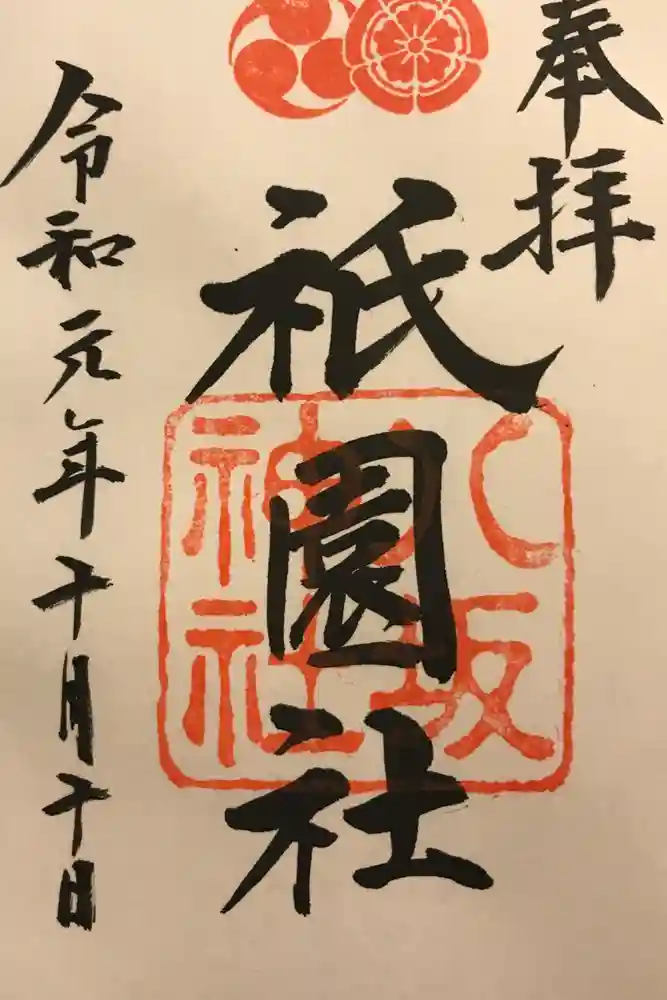 奉拝
祇園社
八坂
神社
令和元年十月十日